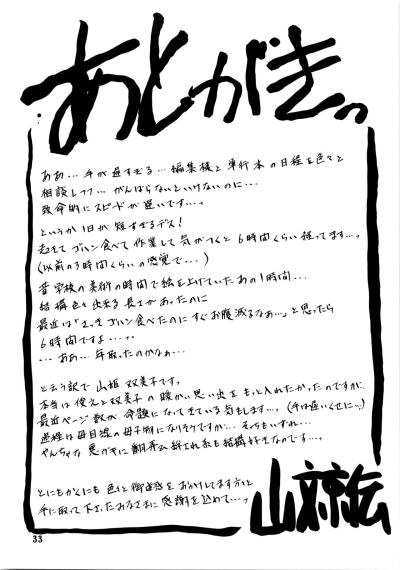 あとがきっ
ああ…手が遅すぎる…編集様と単行本の日程を色々と
相談しつつ…がんばらないといけないのに…
致命的にスピードが遅いです…っ
というか1日が短すぎるデス!
起きてゴハン食べて作業して気がつくと6時間くらい経ってます…っ
(以前の3時間くらいの感覚で…)
昔学校の美術の時間で絵を上げていたあの1時間…
結構色々出来る長さがあったのに
最近は「さっきゴハン食べたのにすぐお腹減るなぁ…」と思ったら
6時間ですよ…っ
…ああ…年取ったのかなぁ…
と云う訳で山姫双美子です。
本当は俊之と双美子の暖かい思い出をもっと入れたかったのですが、
最近ページ数が命題になってきている気もします…っ(手は遅いくせに…)
次は母目線の母子物になりそうですが…そちらもいずれ…
やんちゃな悪ガキに翻弄される結構好きなのです…っ
とにもかくにも色々と御迷惑をおかけします方々と
手に取って下さったみなさまに感謝を込めて…っ
山文京伝
33